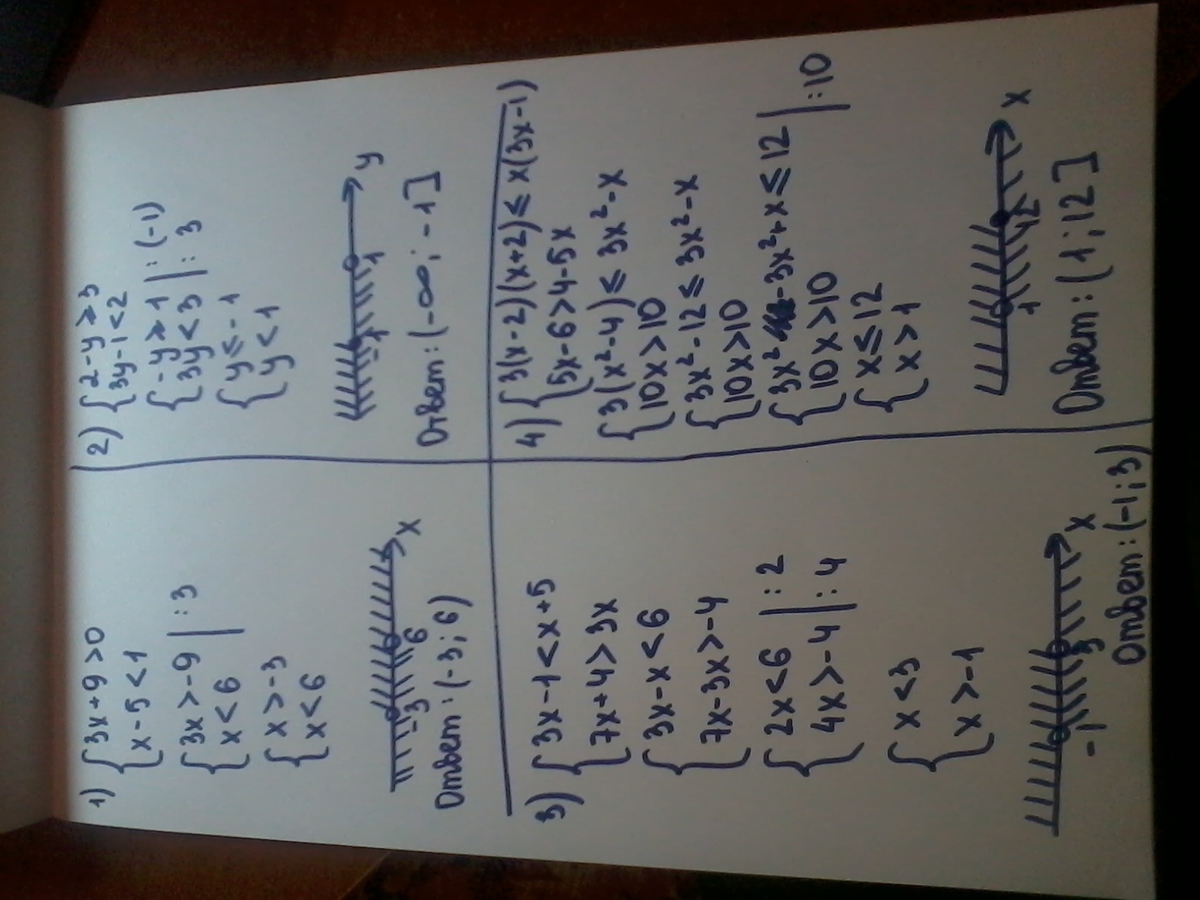 1) {3x+9>0
{x-5<1
{3x>-9 | :3
{x<6
{x>-3
{x<6
-3 6 x
Ответ: (-3; 6)
2) {2-y≥3
{3y-1<2
{-y≥1 | :(-1)
{3y<3 | :3
{y≤-1
{y<1
-1 1 y
Ответ: (-∞; -1]
3) {3x-1<x+5
{7x+4>3x
{3x-x<6
{7x-3x>-4
{2x<6 | :2
{4x>-4 | :4
{x<3
{x>-1
-1 3 x
Ответ: (-1; 3)
4) {3(x-2)(x+2)≤x(3x-1)
{5x-6>4-5x
{3(x²-4)≤3x²-x
{10x>10
{3x²-12≤3x²-x
{10x>10
{3x²-3x²+x≤12
{10x>10 | :10
{x≤12
{x>1
1 12 x
Ответ: (1; 12]